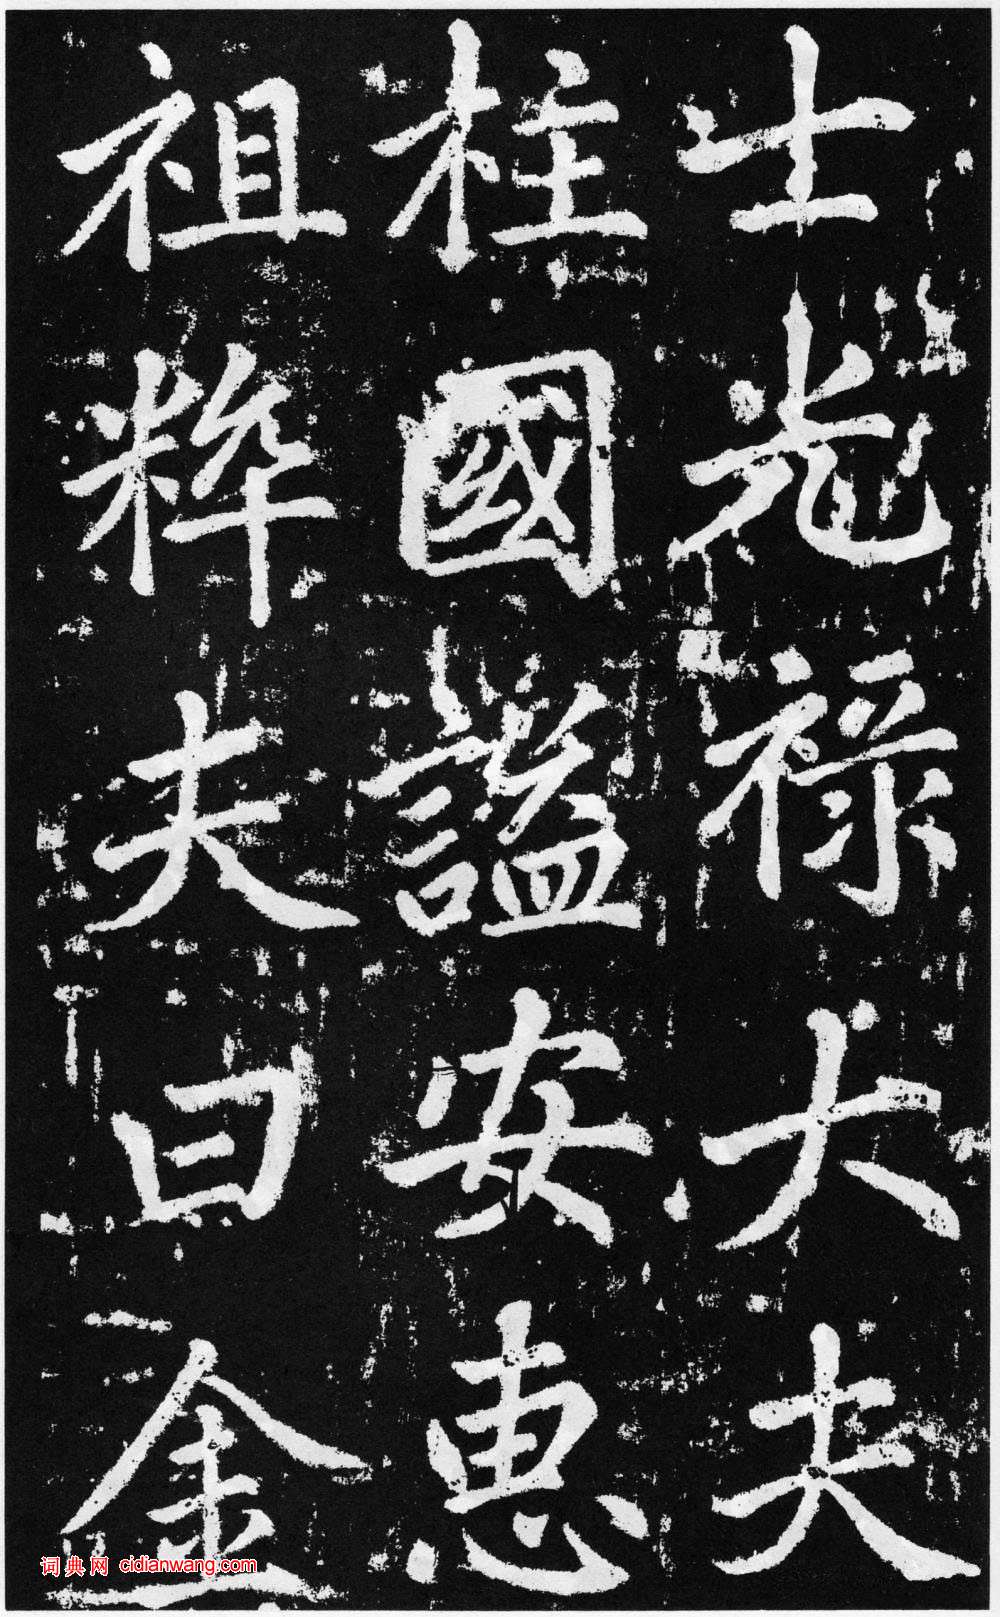 士光祿大夫
柱國謚安惠
祖粹夫曰金
词典网 cidianwang.com